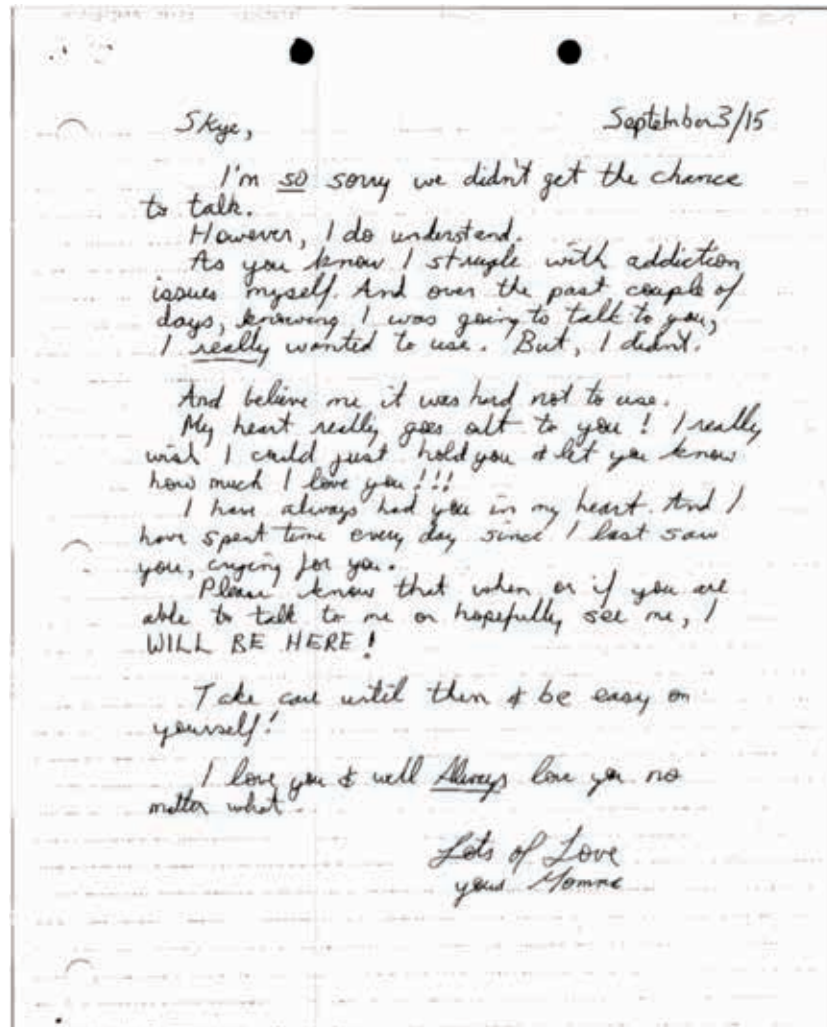 Skye, September 3/15
I'm so sorry we didn't get the chance
to talk.
However, I do understand.
As you know I struggle with addiction
issues myself. And over the past couple of
days, knowing I was going to talk to you,
I really wanted to use. But, I didn't.
And believe me it was hard not to use.
My heart really goes out to you! I really
wish I could just hold you & let you know
how much I love you!!!
I have always had you in my heart. And I
have spent time every day since I last saw
you, crying for you.
Please know that when or if you are
able to talk to me or hopefully see me, I
WILL BE HERE!
Take care until then & be easy on
yourself!
I love you & will Always love you no
matter what.
Lots of Love
your Momme